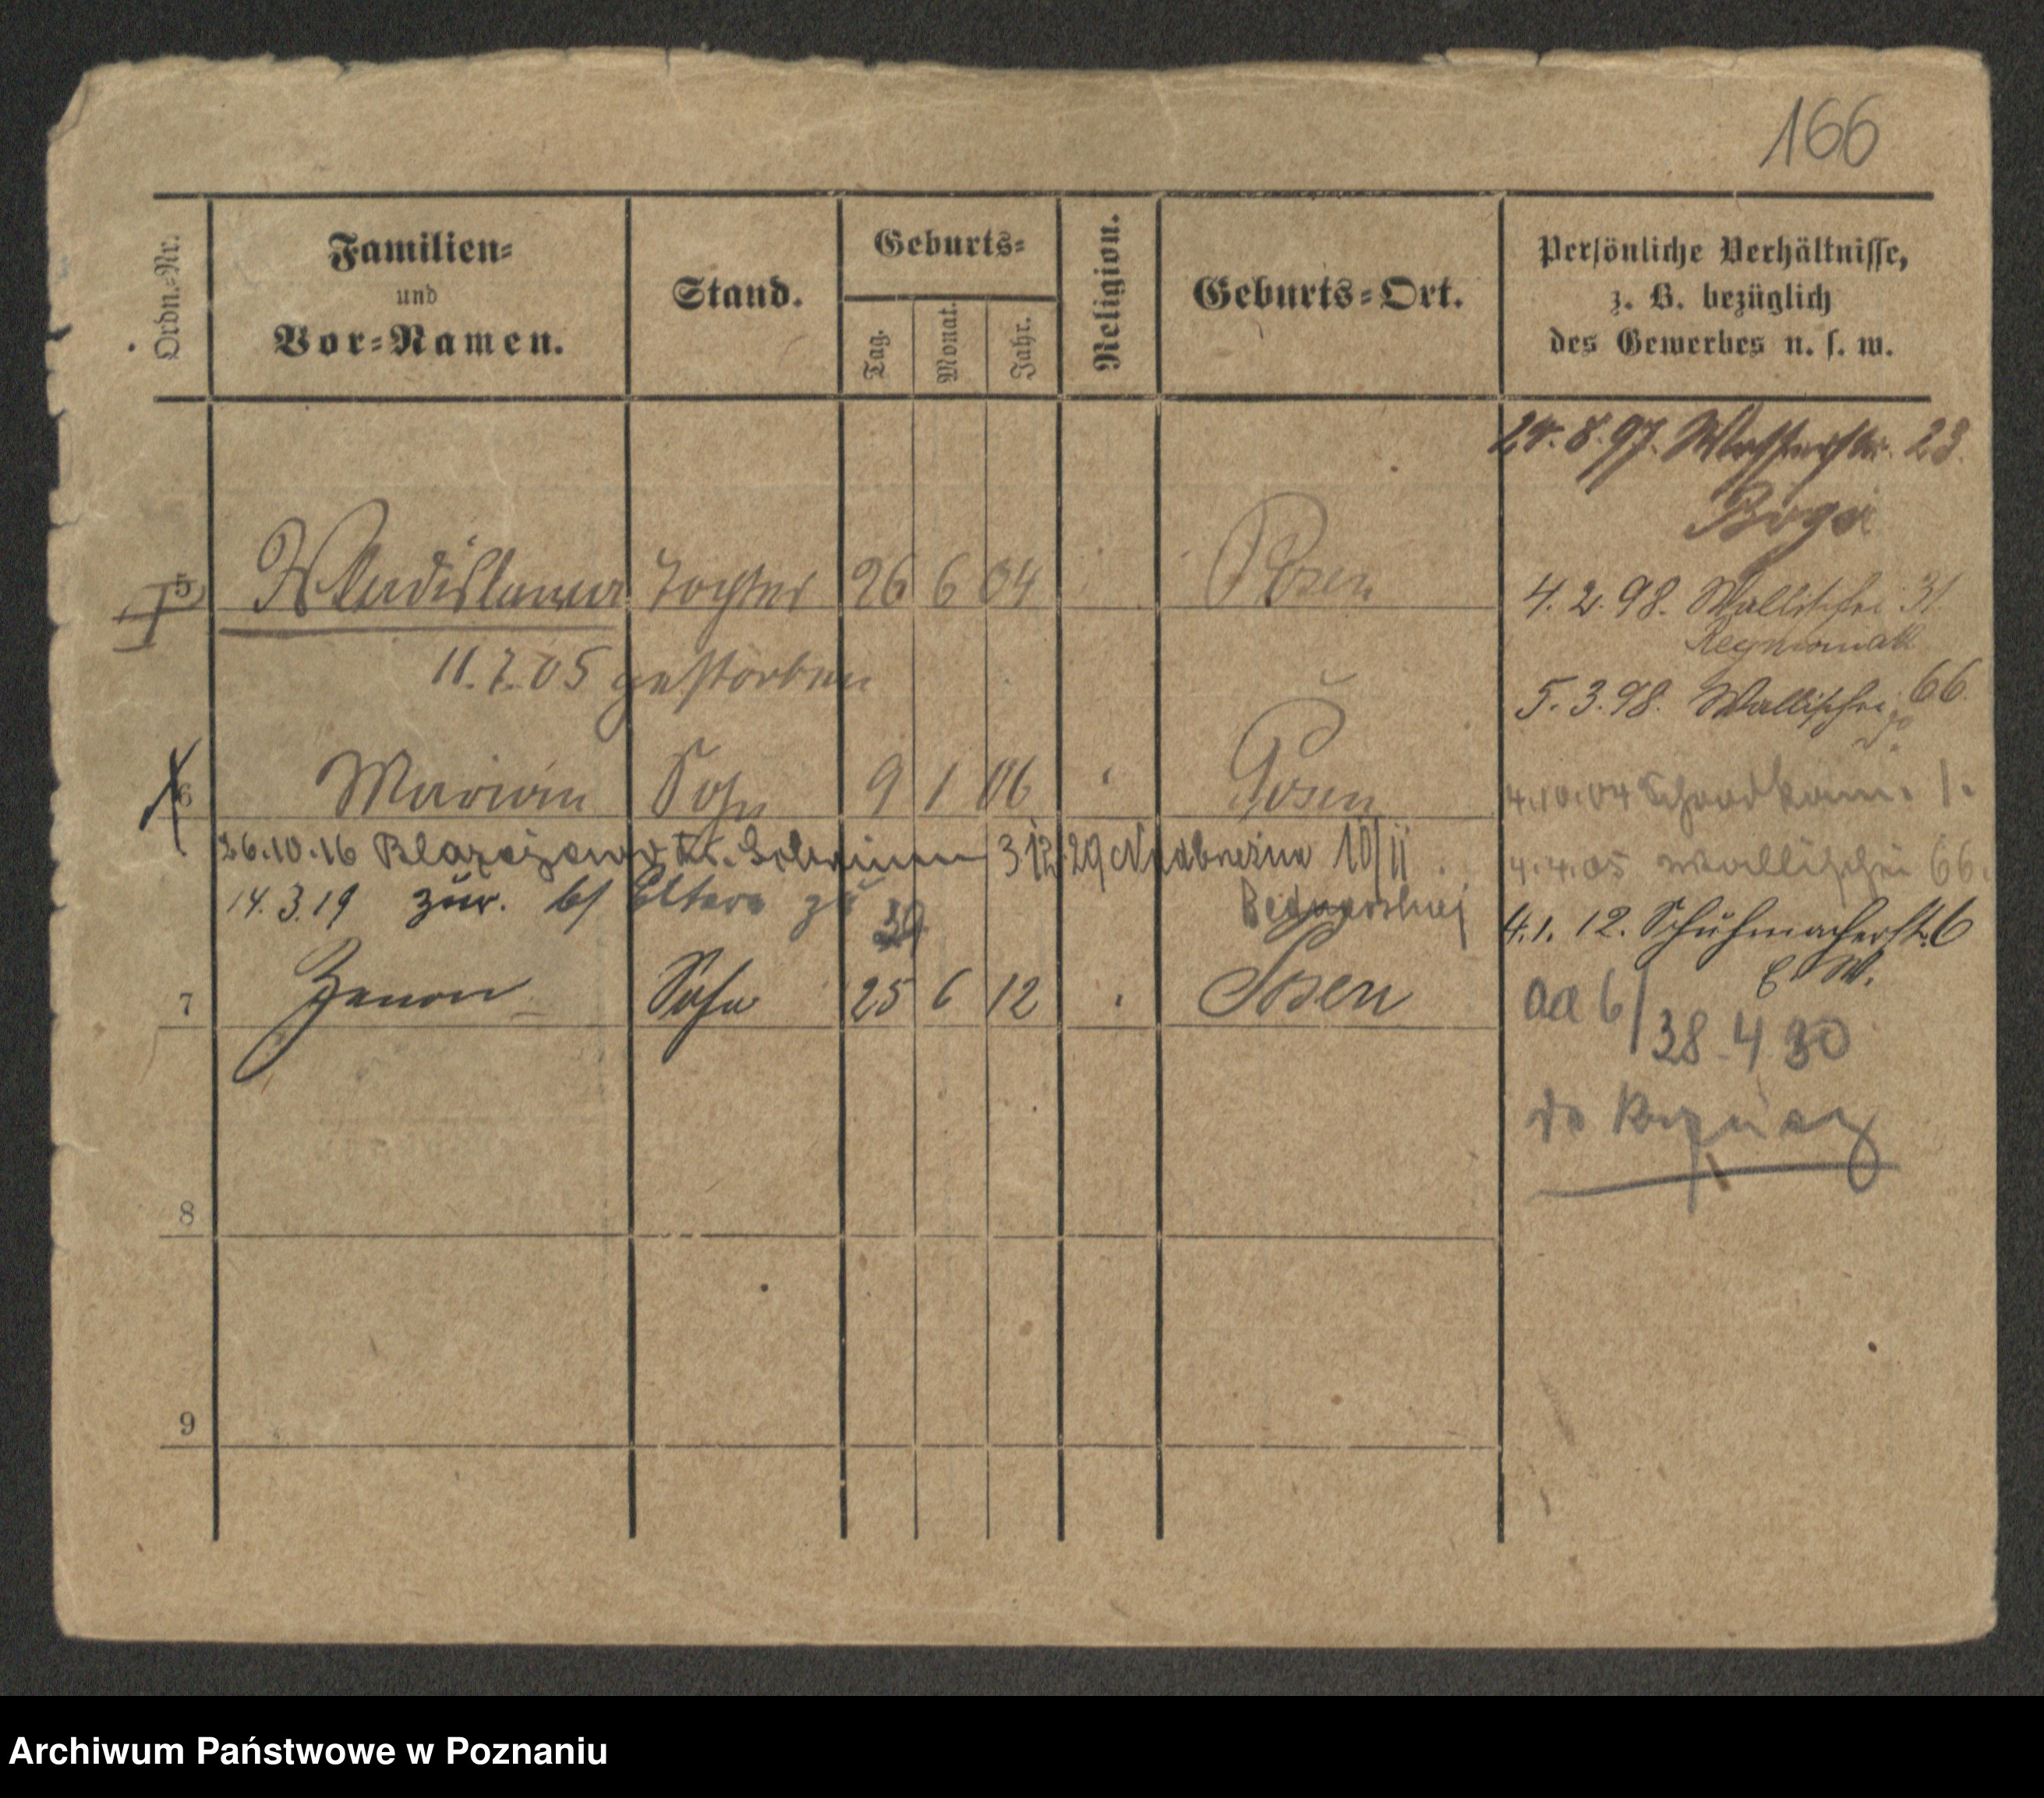 166
Ordn.-Nr.
Familien-
und
Vor-Namen.
Stand.
Geburts-
Tag.
Monat.
Jahr.
Religion.
Geburts-Ort.
Persönliche Verhältnisse,
z. B. bezüglich
des Gewerbes u. s. w.
8.97. 23.
5 Wladislawa Tochter 26 6 04 Posen
4.2.98. Wallischei 31
11.7.05 gestorben
5.3.98. Wallischei 66.
6 Marian Sohn 9 1 06 Posen
4.10.04 1.
26.10.16 3 12 29 10/11
4.4.05 Wallischei 66.
14.3.19 zur. b/ Eltern zu 39
4.1.12. Schuhmacherstr. 6
E W.
7 Zenon Sohn 25 6 12 Posen
aa 6/
38 4 30
do
8
9
Archiwum Państwowe w Poznaniu